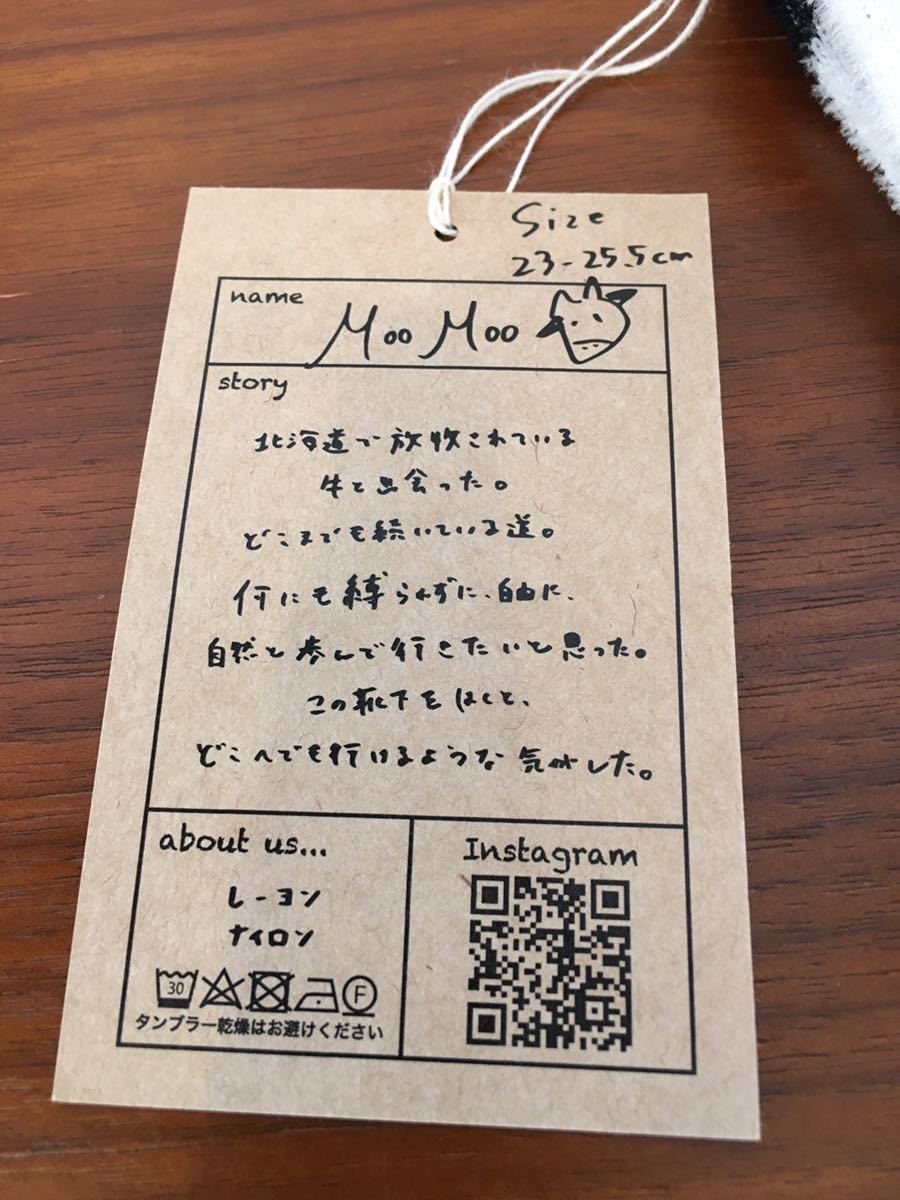 Size
23-25.5cm
name
Moo Moo
story
北海道で放牧されている
牛と出会った。
どこまでも続いている道。
何にも縛られずに、自由に、
自然と歩んで行きたいと思った。
この靴下をはくと、
どこへでも行けるような気がした。
about us...
レーヨン
ナイロン
30
F
タンブラー乾燥はお避けください
Instagram